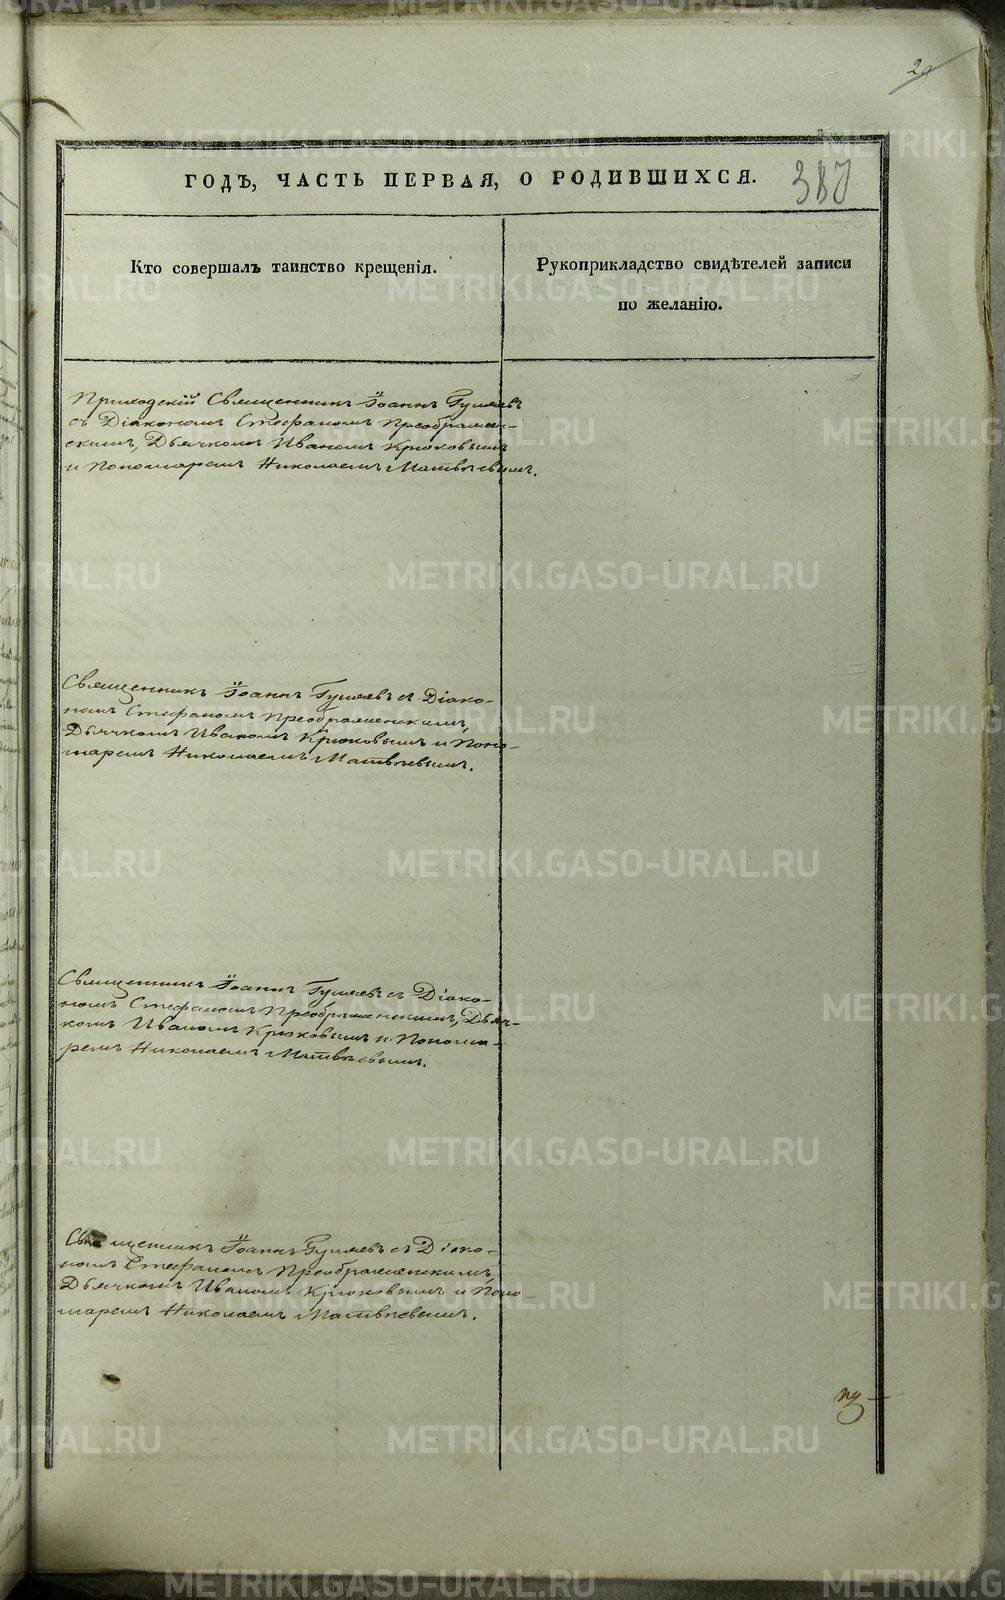 29
ГОДЪ, ЧАСТЬ ПЕРВАЯ, О РОДИВШИХСЯ.
Кто совершалъ таинство крещенія.
Рукоприкладство свидѣтелей записи
по желанію.
Приходскій Священникъ Іоаннъ Гуляевъ
съ Діакономъ Стефаномъ Преображен-
скимъ, Дьячкомъ Иваномъ Крюковымъ
и Пономаремъ Николаемъ Матвѣевымъ.
Священникъ Іоаннъ Гуляевъ съ Діако-
номъ Стефаномъ Преображенскимъ,
Дьячкомъ Иваномъ Крюковымъ и Поно-
маремъ Николаемъ Матвѣевымъ.
Священникъ Іоаннъ Гуляевъ съ Діако-
номъ Стефаномъ Преображенскимъ, Дьяч-
комъ Иваномъ Крюковымъ и Понома-
ремъ Николаемъ Матвѣевымъ.
Священникъ Іоаннъ Гуляевъ съ Діако-
номъ Стефаномъ Преображенскимъ,
Дьячкомъ Иваномъ Крюковымъ и Поно-
маремъ Николаемъ Матвѣевымъ.
METRIKI.GASO-URAL.RU